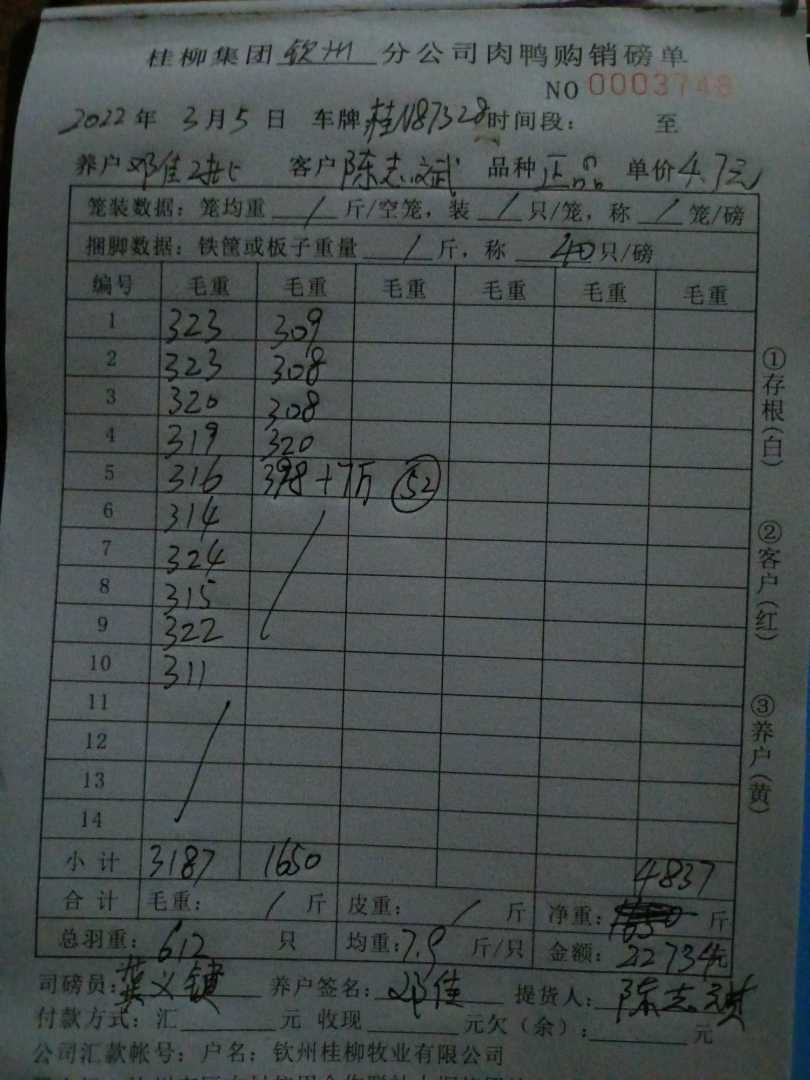 桂柳集团 钦州 分公司肉鸭购销磅单
NO 0003748
2022年 3月5日 车牌桂N87328时间段： 至
养户邓佳 客户陈志斌 品种正品 单价4.7元
笼装数据：笼均重 / 斤/空笼，装 / 只/笼，称 / 笼/磅
捆脚数据：铁筐或板子重量 / 斤，称 40只/磅
编号 毛重 毛重 毛重 毛重 毛重 毛重
1 323 309
2 323 308
3 320 308
4 319 320
5 316 398+7 52
6 314
7 324
8 315
9 322
10 311
11
12
13
14
小计 3187 1650 4837
合计 毛重： / 斤 皮重： / 斤 净重： 斤
总羽重：612 只 均重：7.9 斤/只 金额：22734元
司磅员： 养户签名：邓佳 提货人：陈志斌
付款方式：汇 元 收现 元欠（余）： 元
公司汇款帐号：户名：钦州桂柳牧业有限公司
①存根（白）
②客户（红）
③养户（黄）